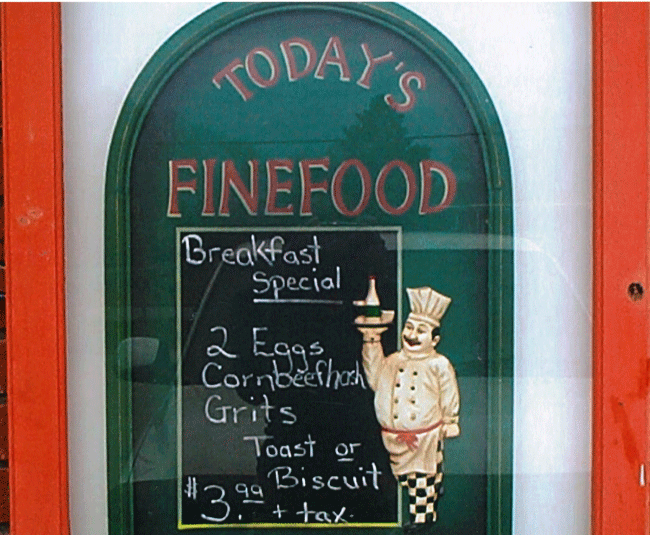 TODAY'S
FINEFOOD
Breakfast
Special
2 Eggs
Cornbeefhash
Grits
Toast or
Biscuit
$3.99 + tax.